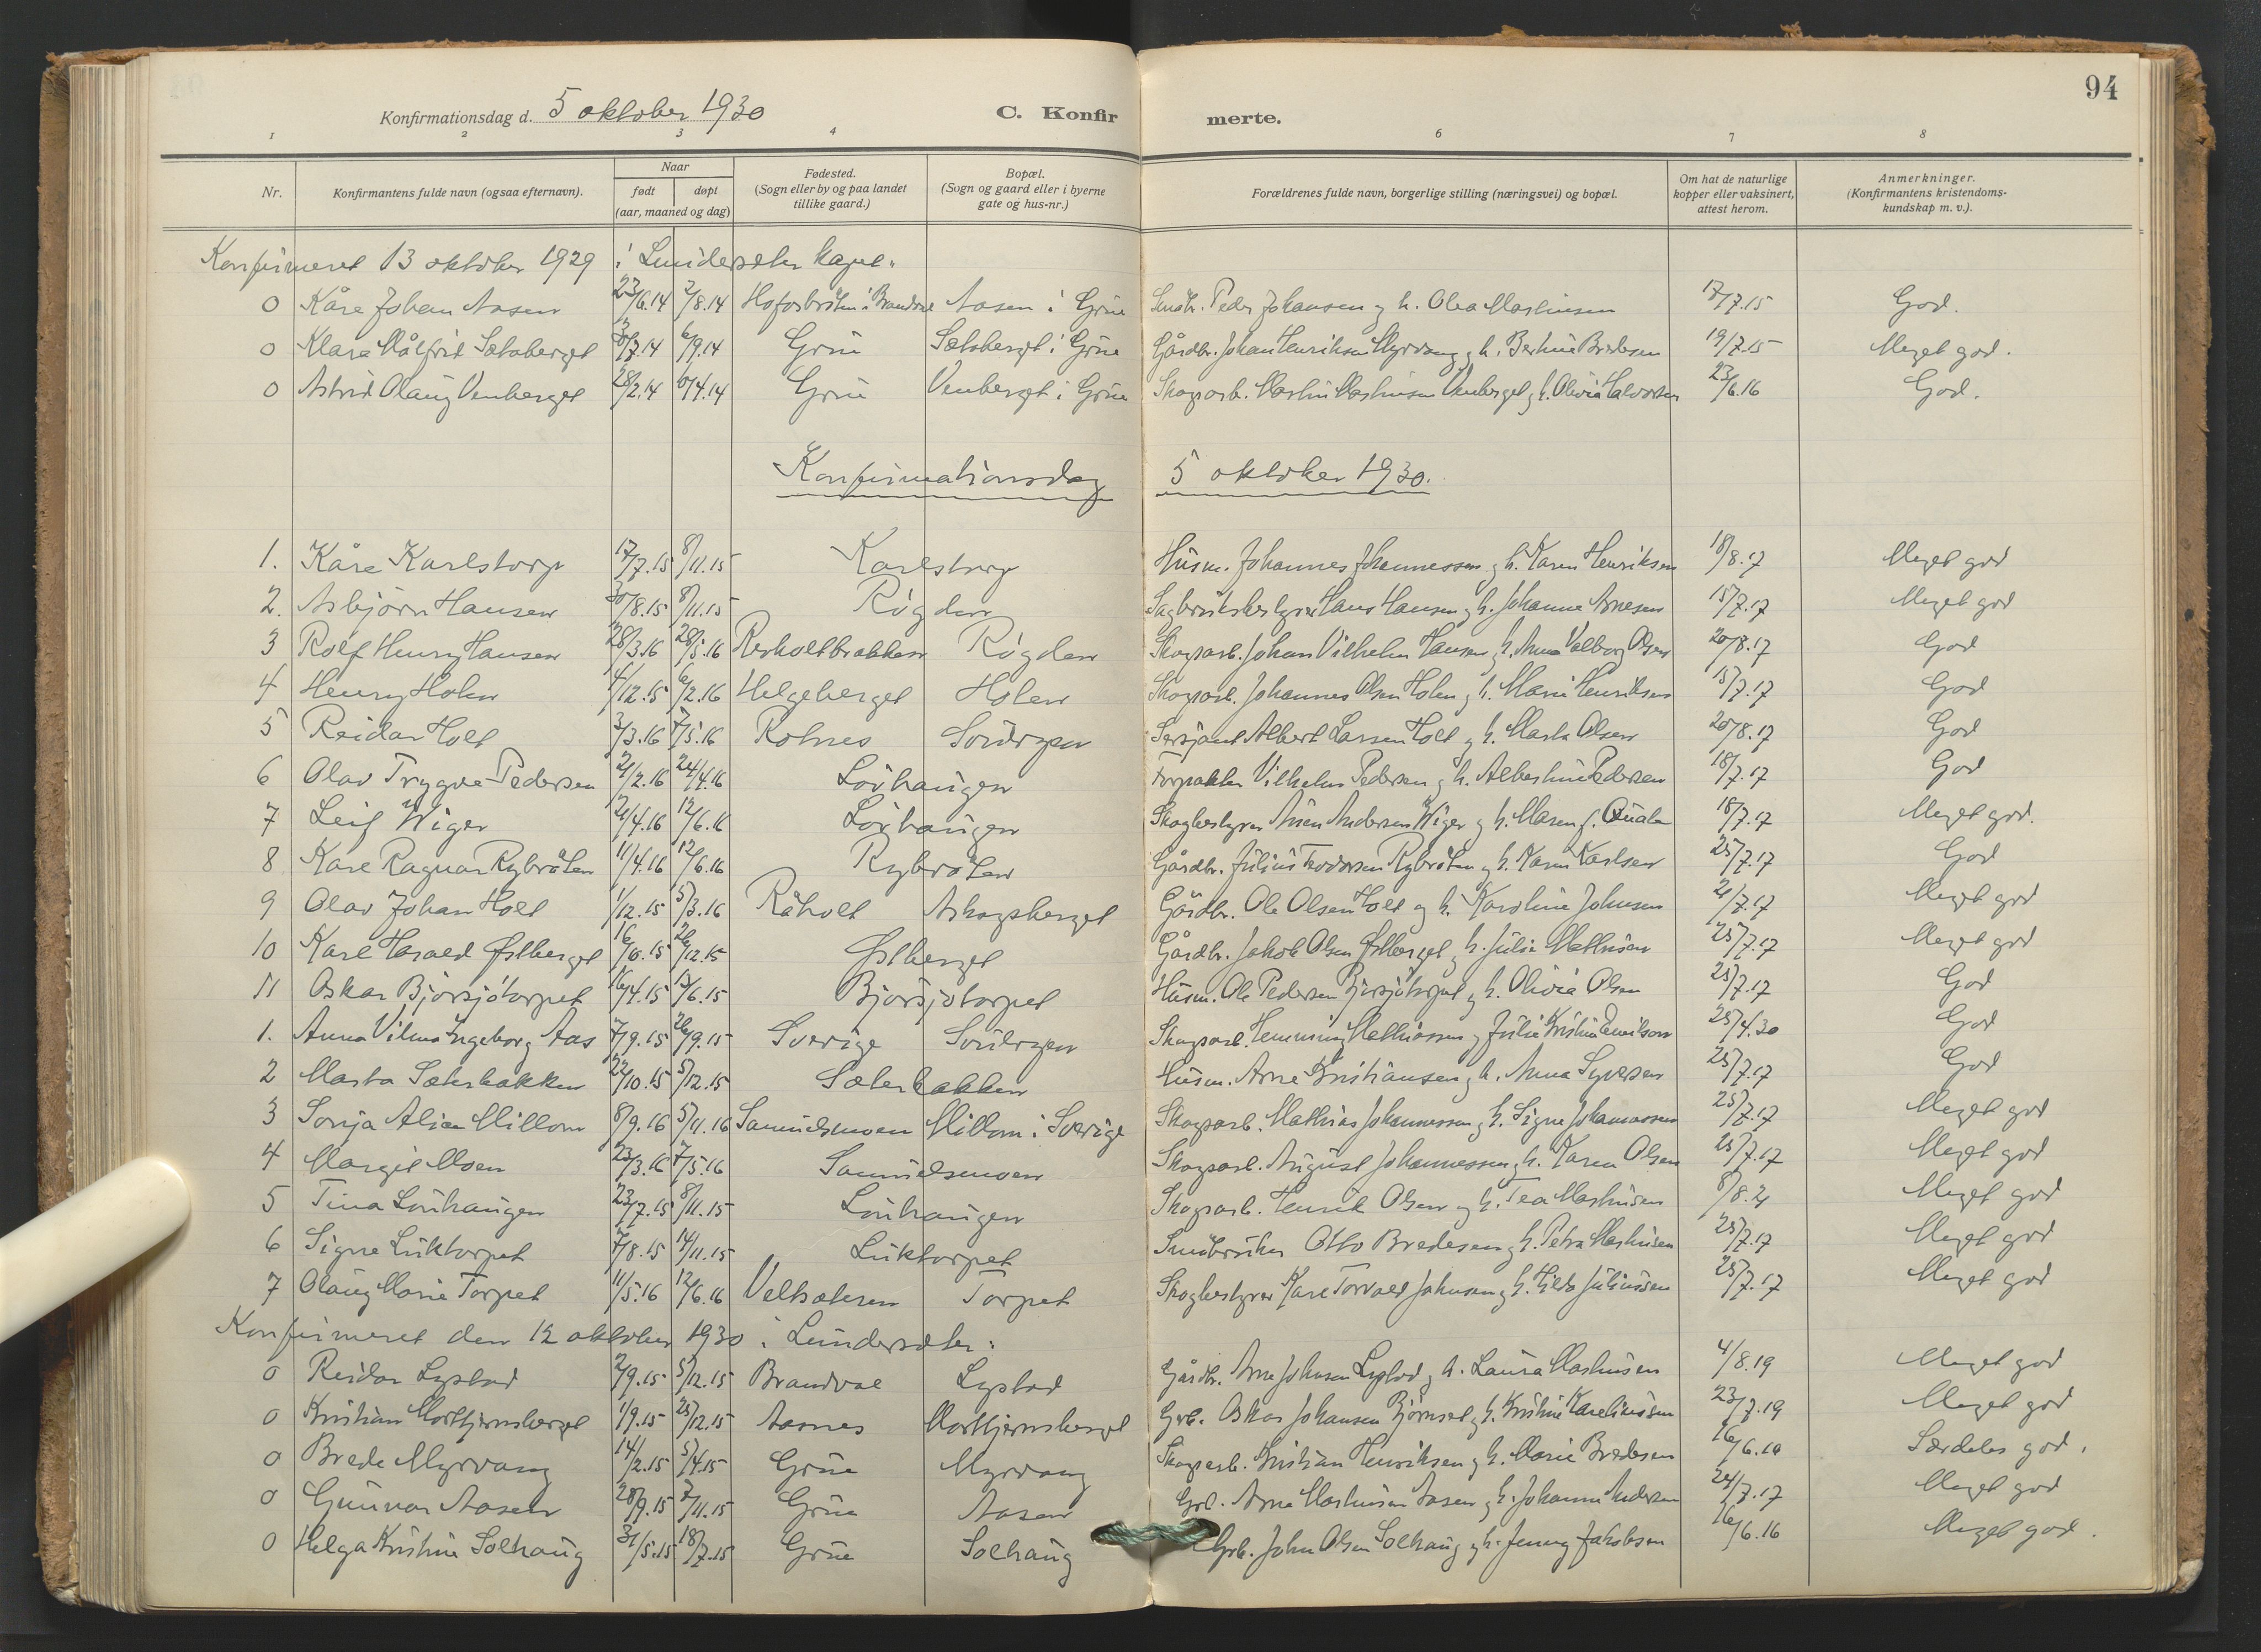 94
Konfirmationsdag d. 5 oktober 1930 C. Konfir merte.
1 2 3 4 6 7 8
Nr. Konfirmantens fulde navn (ogsaa efternavn). Naar født døpt (aar, maaned og dag) Fødested. (Sogn eller by og paa landet tillike gaard.) Bopæl. (Sogn og gaard eller i byerne gate og hus-nr.) Forældrenes fulde navn, borgerlige stilling (næringsvei) og bopæl. Om hat de naturlige kopper eller vaksinert, attest herom. Anmerkninger. (Konfirmantens kristendoms-kundskap m. v.).
Konfirmeret 13 oktober 1929 i Lundersæter kapel.
0 Kåre Johan Aasen 23/6.14 2/8.14 Hofosbråten i Brandval Aasen i Grue Småbr. Peder Johansen og h. Olea Mathisen 17/7.15 God.
0 Klara Målfrit Sætaberget 30/7.14 6/9.14 Grue Sætaberget i Grue Gårdbr. Johan Henriksen Myrvang og h. Berthine Bredesen 19/7.15 Meget god.
0 Astrid Olaug Venberget 28/2.14 /4.14 Grue Venberget i Grue Skogsarb. Martin Martinsen Venberget og h. Olivia Halvorsen 23/6.16 God.
Konfirmationsdag 5 oktober 1930.
1. Kåre Karlstorp 17/7.15 8/11.15 Karlstorp Husm. Johannes Johannessen og h. Karen Henriksen 18/8.17 Meget god
2. Asbjørn Hansen 30/8.15 8/11.15 Rögden Sagbruksbestyrer Hans Hansen og h. Johanne Arnesen 15/7.17 Meget god
3 Rolf Henry Hansen 28/3.16 28/5.16 Rerholtbrakken Rögden Skogsarb. Johan Vilhelm Hansen og h. Anna Valborg Olsen 20/8.17 God
4 Henry Holen 4/12.15 6/2.16 Helgeberget Holen Skogsarb. Johannes Olsen Holen og h. Marie Henriksen 15/7.17 God
5 Reidar Holt 3/3.16 7/5.16 Rotnes Sersjant Albert Larsen Holt og h. Marta Olsen 20/8.17 God
6 Olav Trygve Pedersen 21/2.16 24/4.16 Lövhaugen Forpakter Vilhelm Pedersen og h. Albertine Pedersen 18/7.17 God
7 Leif Wiger 21/4.16 12/6.16 Lövhaugen Skogbestyrer Anen Andersen Wiger og h. Maren f. Quale 18/7.17 Meget god.
8 Kåre Ragnar Rybråten 11/4.16 12/6.16 Rybråten Gårdbr. Julius Teodorsen Rybråten og h. Karen Karlsen 25/7.17 God
9 Olav Johan Holt 1/12.15 5/3.16 Råholt Askogsberget Gårdbr. Ole Olsen Holt og h. Karoline Johnsen 21/7.17 Meget god
10 Karl Harald Østberget 16/10.15 26/12.15 Østberget Gårdbr. Jakob Olsen Østberget og h. Julie Mathisen 25/7.17 Meget god
11 Oskar Björsjötorpet 16/4.15 13/6.15 Björsjötorpet Husm. Ole Pedersen Björsjötorpet og h. Olivia Olsen 25/7.17 God
1. Anna Vilma Ingeborg Aas 7/9.15 26/9.15 Sverige Skogsarb. Henning Mathiassen og Julie Kristine Danielson 25/4.30 God
2 Marta Sæterbakken 22/10.15 5/12.15 Sæterbakken Husm. Arne Kristiansen og h. Anna Syversen 25/7.17 God
3 Sonja Alice Millom 8/9.16 5/11.16 Samuelsmoen Millom i Sverige Skogsarb. Mathias Johannessen og h. Signe Johannessen 25/7.17 Meget god
4 Margit Moen 23/3.16 7/5.16 Samuelsmoen Skogsarb. August Johannessen og h. Karen Olsen 25/7.17 Meget god
5 Tina Lövhaugen 23/7.15 8/11.15 Lövhaugen Skogsarb. Henrik Olsen og h. Tea Mathisen 8/8.21 Meget god
6 Signe Luktorpet 7/8.15 14/11.15 Luktorpet Småbruker Otto Bredesen og h. Petra Mathisen 25/7.17 Meget god
7 Olaug Marie Torpet 11/5.16 12/6.16 Veltsæteren Torpet Skogbestyrer Karl Torvald Johnsen og h. Hilda Juliussen 25/7.17 Meget god
Konfirmeret den 12 oktober 1930 i Lundersæter:
0 Reidar Lystad 2/9.15 5/12.15 Brandval Lystad Gårdbr. Arne Johnsen Lystad og h. Laura Mathisen 4/8.19 Meget god
0 Kristian Morttjernsberget 1/9.15 25/12.15 Aasnes Morttjernsberget Grb. Oskar Johansen Björnset og h. Kristine Kareliussen 23/7.19 Meget god
0 Brede Myrvang 14/2.15 5/4.15 Grue Myrvang Skogsarb. Kristian Henriksen og h. Marie Bredesen 16/6.18 Særdeles god.
0 Gunnar Aasen 28/9.15 7/11.15 Grue Aasen Grb. Arne Mathisen Aasen og h. Johanne Andersen 24/7.17 Meget god
0 Helga Kristine Solhaug 31/5.15 18/7.15 Grue Solhaug Grb. John Olsen Solhaug og h. Jenny Jakobsen 16/6.16 Meget god.